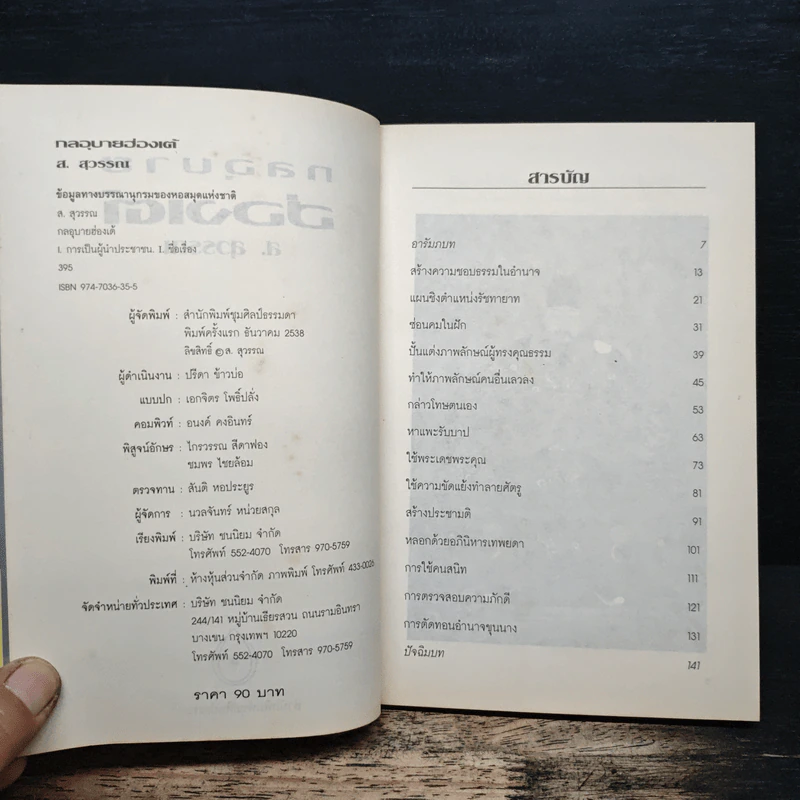 กลอุบายฮ่องเต้
ส. สุวรรณ
ข้อมูลทางบรรณานุกรมของหอสมุดแห่งชาติ
ส. สุวรรณ
กลอุบายฮ่องเต้
1. การเป็นผู้นำประชาชน. I. ชื่อเรื่อง
395
ISBN 974-7036-35-5
ผู้จัดพิมพ์ : สำนักพิมพ์ชุมศิลป์ธรรมดาฯ
พิมพ์ครั้งแรก ธันวาคม 2538
ลิขสิทธิ์ © ส. สุวรรณ
ผู้ดำเนินงาน : ปรีดา ข้าวบ่อ
แบบปก : เอกจิตร โพธิ์ปลั่ง
คอมพิวท์ : อนงค์ คงอินทร์
พิสูจน์อักษร : ไกรวรรณ สีดาฟอง
ชมพร ไชยล้อม
ตรวจทาน : สันติ หอประยูร
ผู้จัดการ : นวลจันทร์ หน่วยสกุล
เรียงพิมพ์ : บริษัท ชนนิยม จำกัด
โทรศัพท์ 552-4070 โทรสาร 970-5759
พิมพ์ที่ : ห้างหุ้นส่วนจำกัด ภาพพิมพ์ โทรศัพท์ 433-0026
จัดจำหน่ายทั่วประเทศ : บริษัท ชนนิยม จำกัด
244/141 หมู่บ้านเธียรสวน ถนนรามอินทรา
บางเขน กรุงเทพฯ 10220
โทรศัพท์ 552-4070 โทรสาร 970-5759
ราคา 90 บาท
สารบัญ
อารัมภบท 7
สร้างความชอบธรรมในอำนาจ 13
แผนชิงตำแหน่งรัชทายาท 21
ซ่อนคมในฝัก 31
ปั้นแต่งภาพลักษณ์ผู้ทรงคุณธรรม 39
ทำให้ภาพลักษณ์คนอื่นเลวลง 45
กล่าวโทษตนเอง 53
หาแพะรับบาป 63
ใช้พระเดชพระคุณ 73
ใช้ความขัดแย้งทำลายศัตรู 81
สร้างประชามติ 91
หลอกด้วยอภินิหารเทพยดา 101
การใช้คนสนิท 111
การตรวจสอบความภักดี 121
การตัดทอนอำนาจขุนนาง 131
ปัจฉิมบท 141